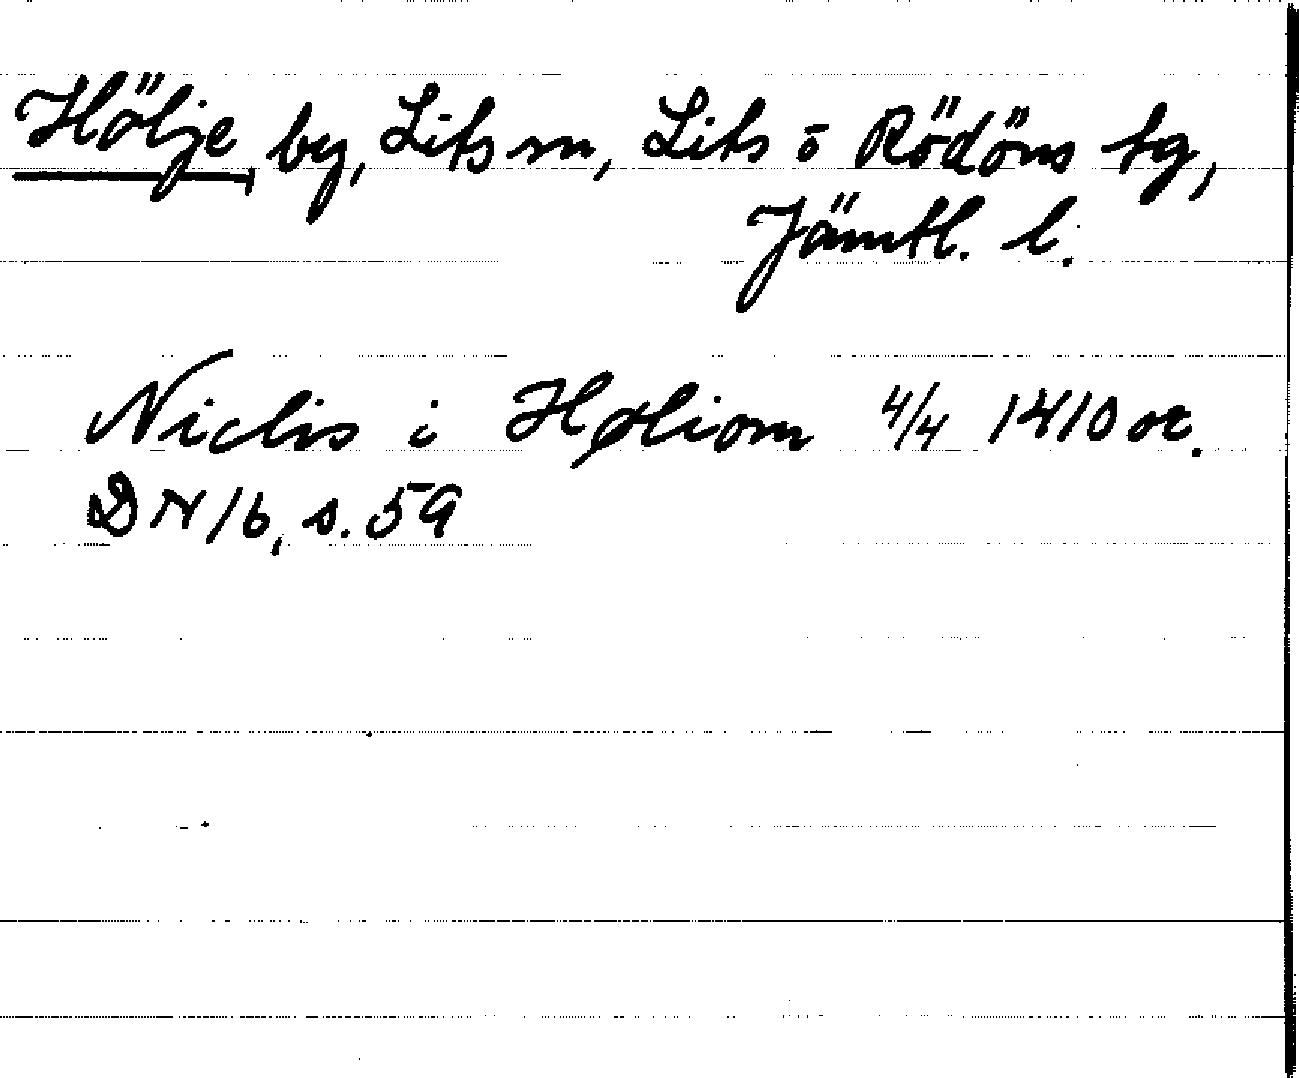 Hölje by, Lits sn, Lits o Rödöns tg,
Jämtl. l.
Niclis i Høliom 4/4 1410 or.
DN 16, s. 59